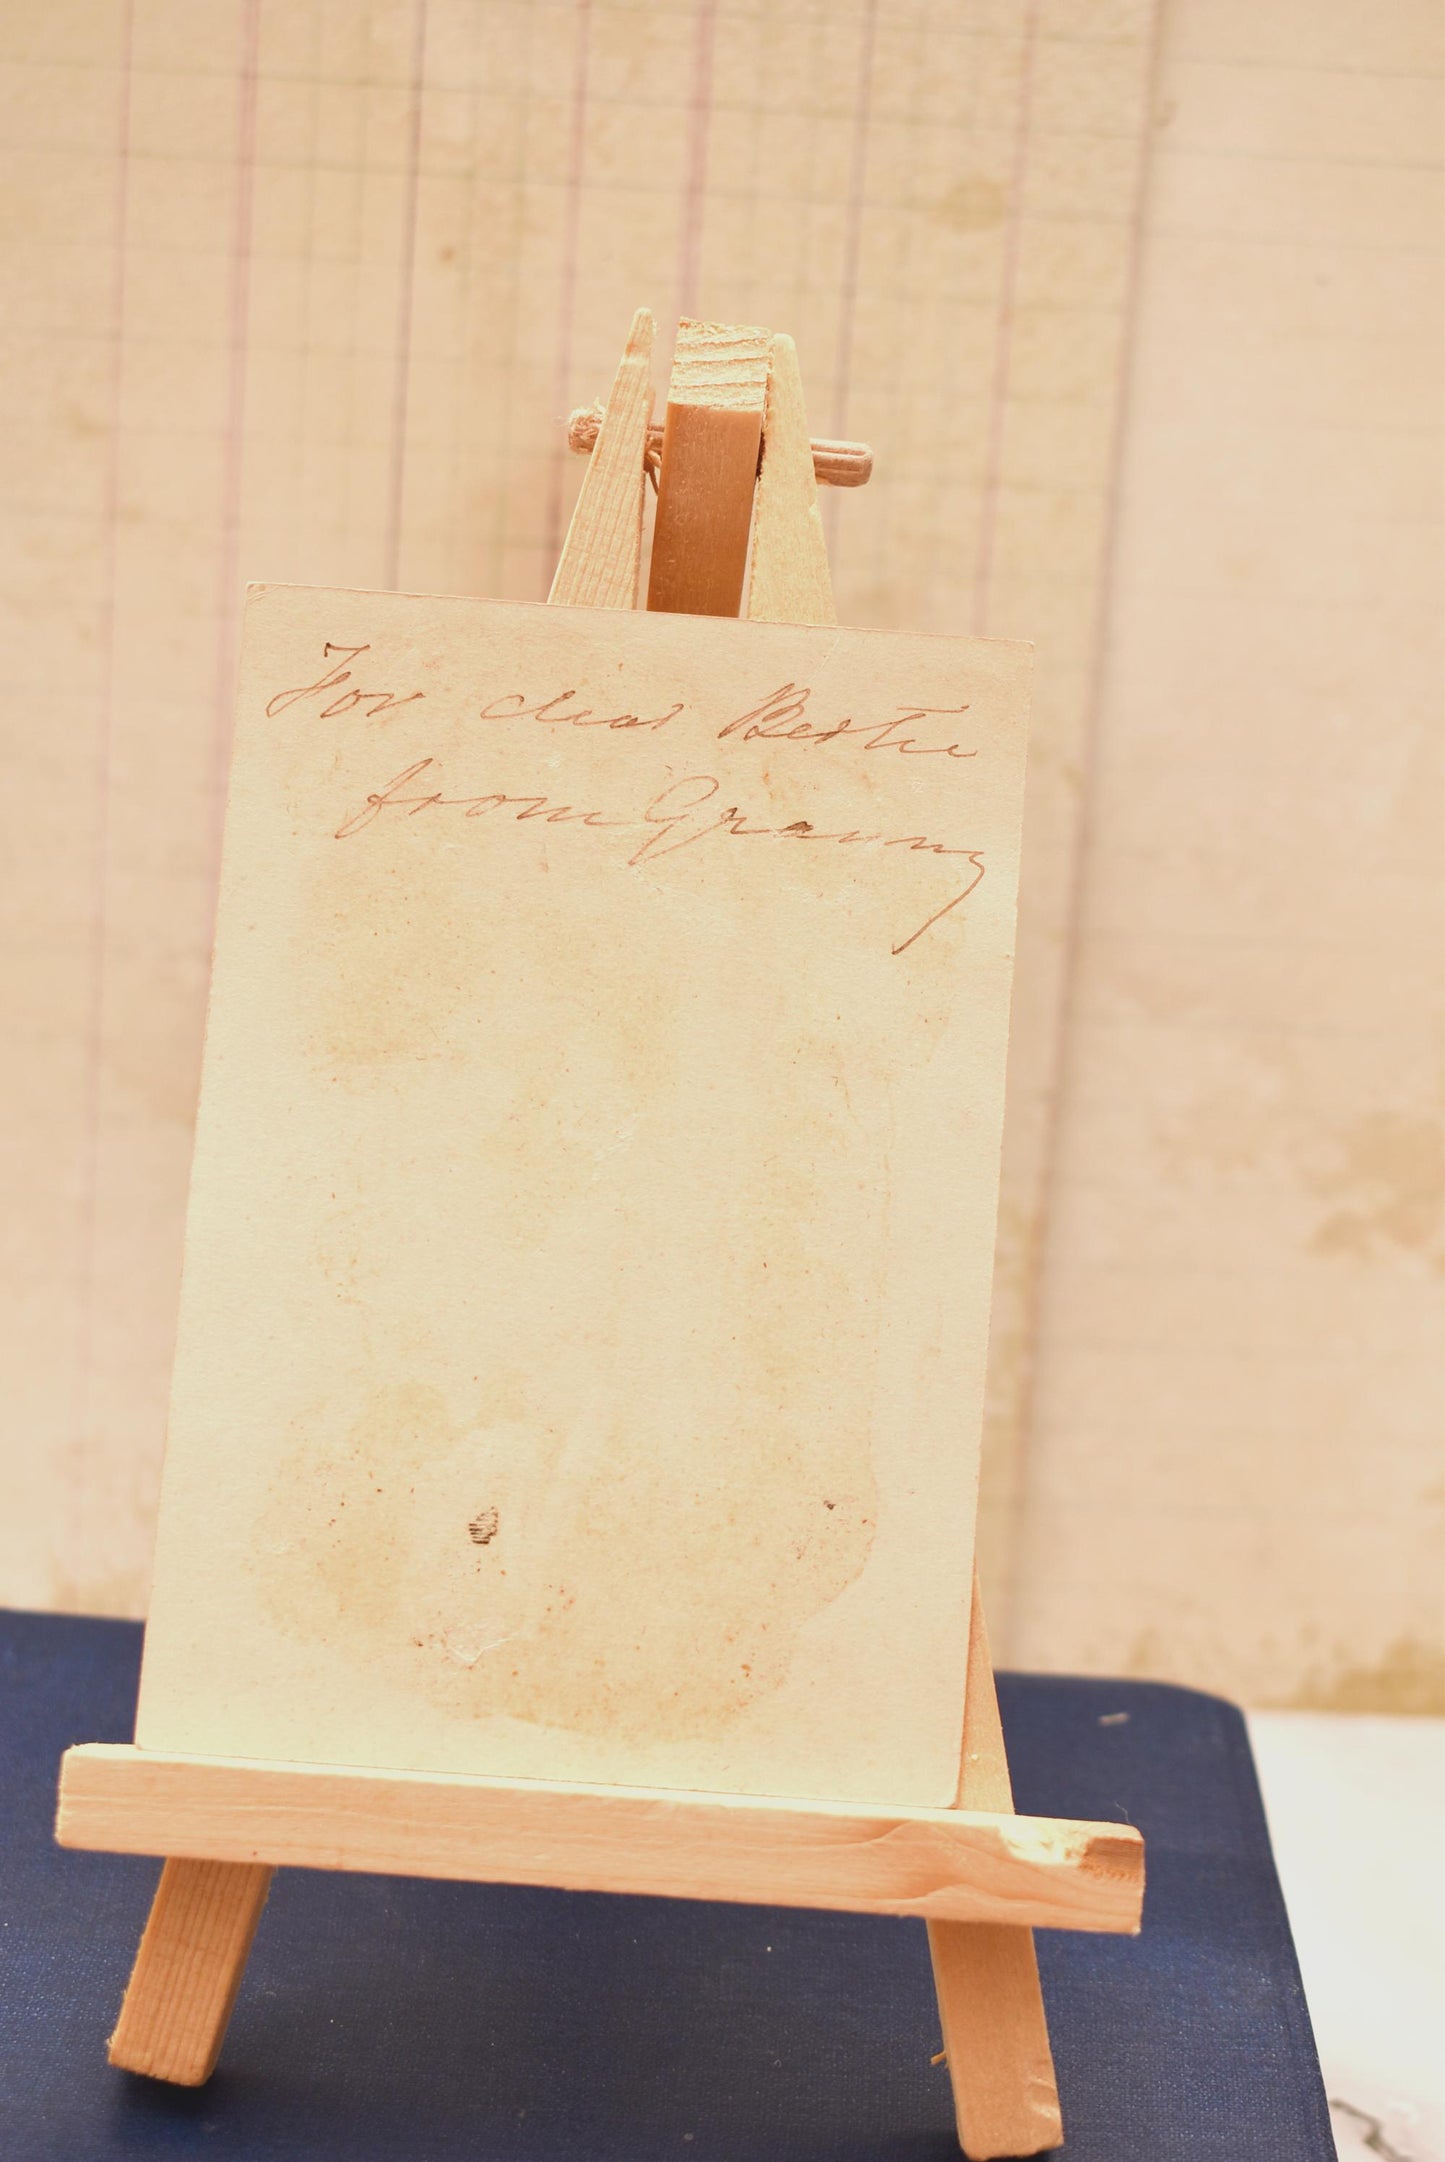 For dear Bertie
from Granny